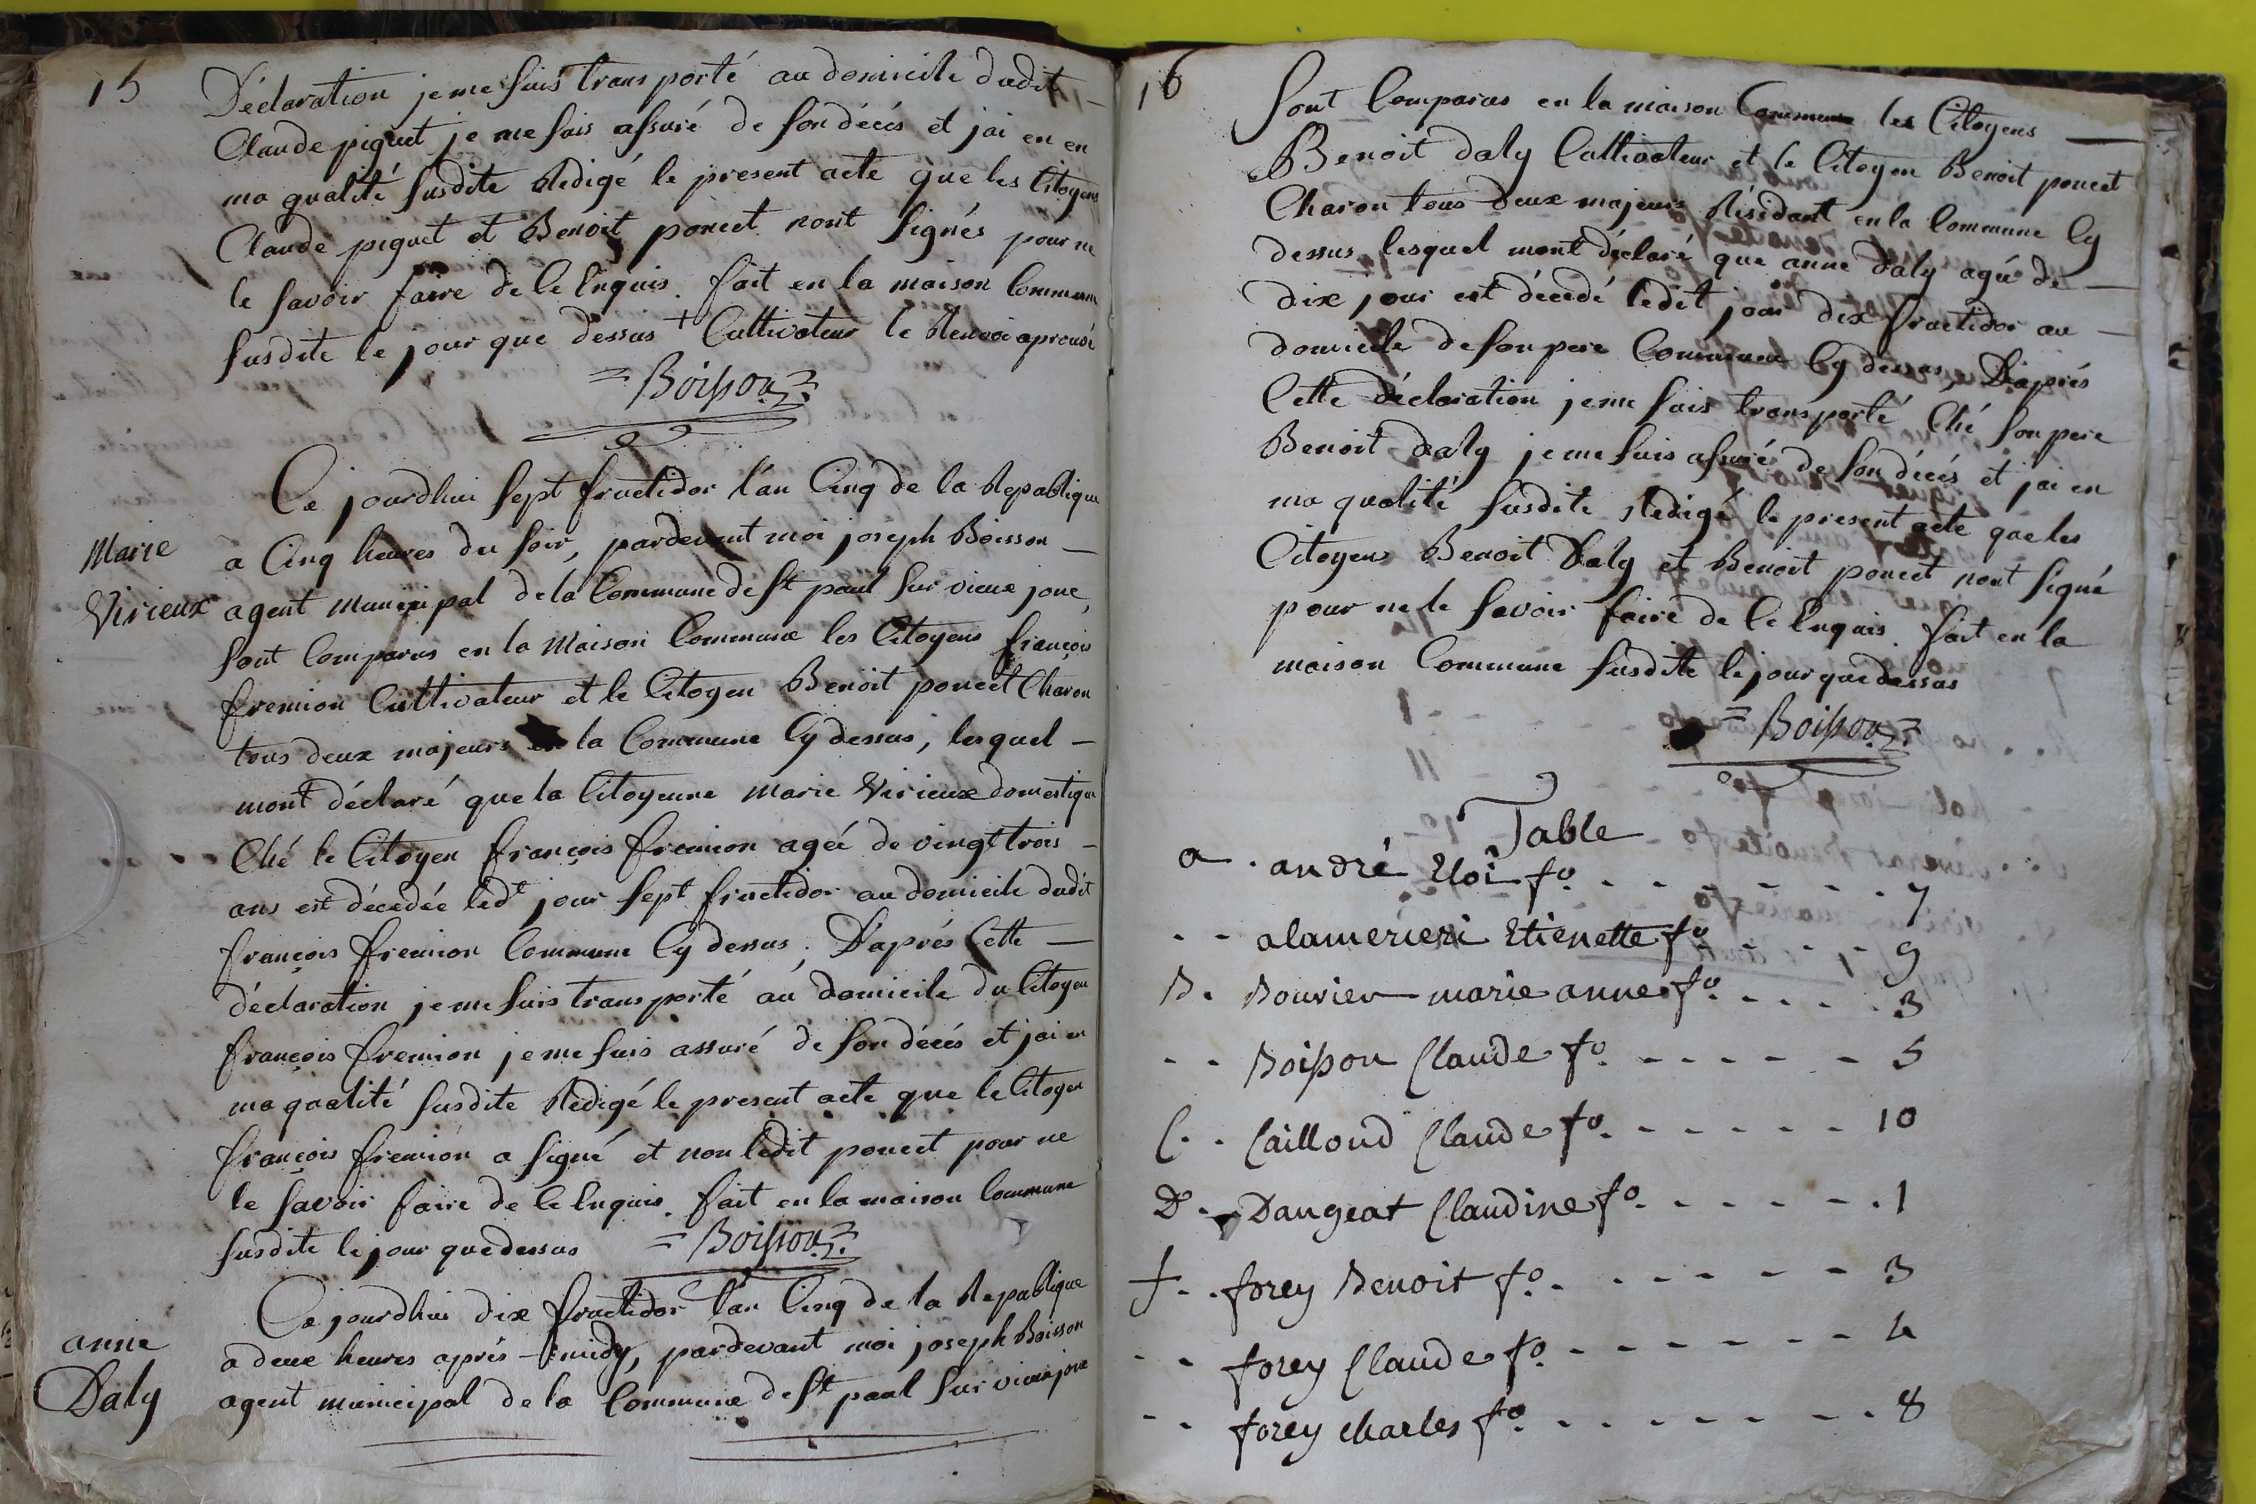 15
Déclaration je me suis transporté au domicile dudit
Claude piquet je me suis assuré de son décés et jai en en
ma qualité susdite Redigé le present acte que les Citoyens
Claude piquet et Benoit poncet nont signés pour ne
le savoir faire de ce Enquis. fait en la maison Commune
susdite le jour que dessus + Cultivateur le Renvoi aprouvé
= Boisson =
Marie
Virieux
Ce jourdhui sept fructidor l'an Cinq de la Republique
a Cinq heures du soir, pardevant moi joseph Boisson
agent municipal de la Commune de St paul sur vieux jonc,
sont Comparus en la Maison Commune les Citoyens françois
fremion Cultivateur et le Citoyen Benoit poncet Charon
tous deux majeurs la Commune Cy dessus, lesquel
mont déclaré que la Citoyenne Marie Virieux domestique
Ché le Citoyen françois fremion agée de vingt trois
ans est décedée ledt jour sept fructidor au domicile dudit
françois fremion Commune Cy dessus; D'aprés Cette
déclaration je me suis transporté au domicile du Citoyen
françois fremion je me suis assuré de son décés et jai en
ma qualité susdite Redigé le present acte que le Citoyen
françois fremion a signé et non ledit poncet pour ne
le savoir faire de ce Enquis. fait en la maison Commune
susdite le jour que dessus = Boisson =
anne
Daly
Ce jourdhui dix fructidor l'an Cinq de la Republique
a deux heures aprés-midy, pardevant moi joseph Boisson
agent municipal de la Commune de St paul sur vieux jonc
16
sont Comparus en la maison Commune les Citoyens
Benoit Daly Cultivateur et le Citoyen Benoit poncet
Charon tous deux majeurs Résidant en la Commune Cy
dessus lesquel mont déclaré que anne Daly agé de
dix jour est décedé ledit jour dix fructidor au
domicile de son pere Commune Cy dessus, D'aprés
Cette déclaration je me suis transporté Ché son pere
Benoit Daly je me suis assuré de son décés et jai en
ma qualité susdite Redigé le present acte que les
Citoyens Benoit Daly et Benoit poncet nont signé
pour ne le savoir faire de ce Enquis. fait en la
maison Commune susdite le jour que dessus
= Boisson =
Table
a . andré Eloi fo. - - - - - - - 7
- - alamercieri Etienette fo - - - - 9
B. Bouvier marie anne fo. - - - - 3
- - Boisson Claude fo. - - - - - 5
C. . Cailloud Claude fo. - - - - - - 10
D. . Dangeat Claudine fo. - - - - - . 1
f. . forey Benoit fo. - - - - - - - 3
- - forey Claude fo. - - - - - - - 4
- - forey charles fo. - - - - - - - 8